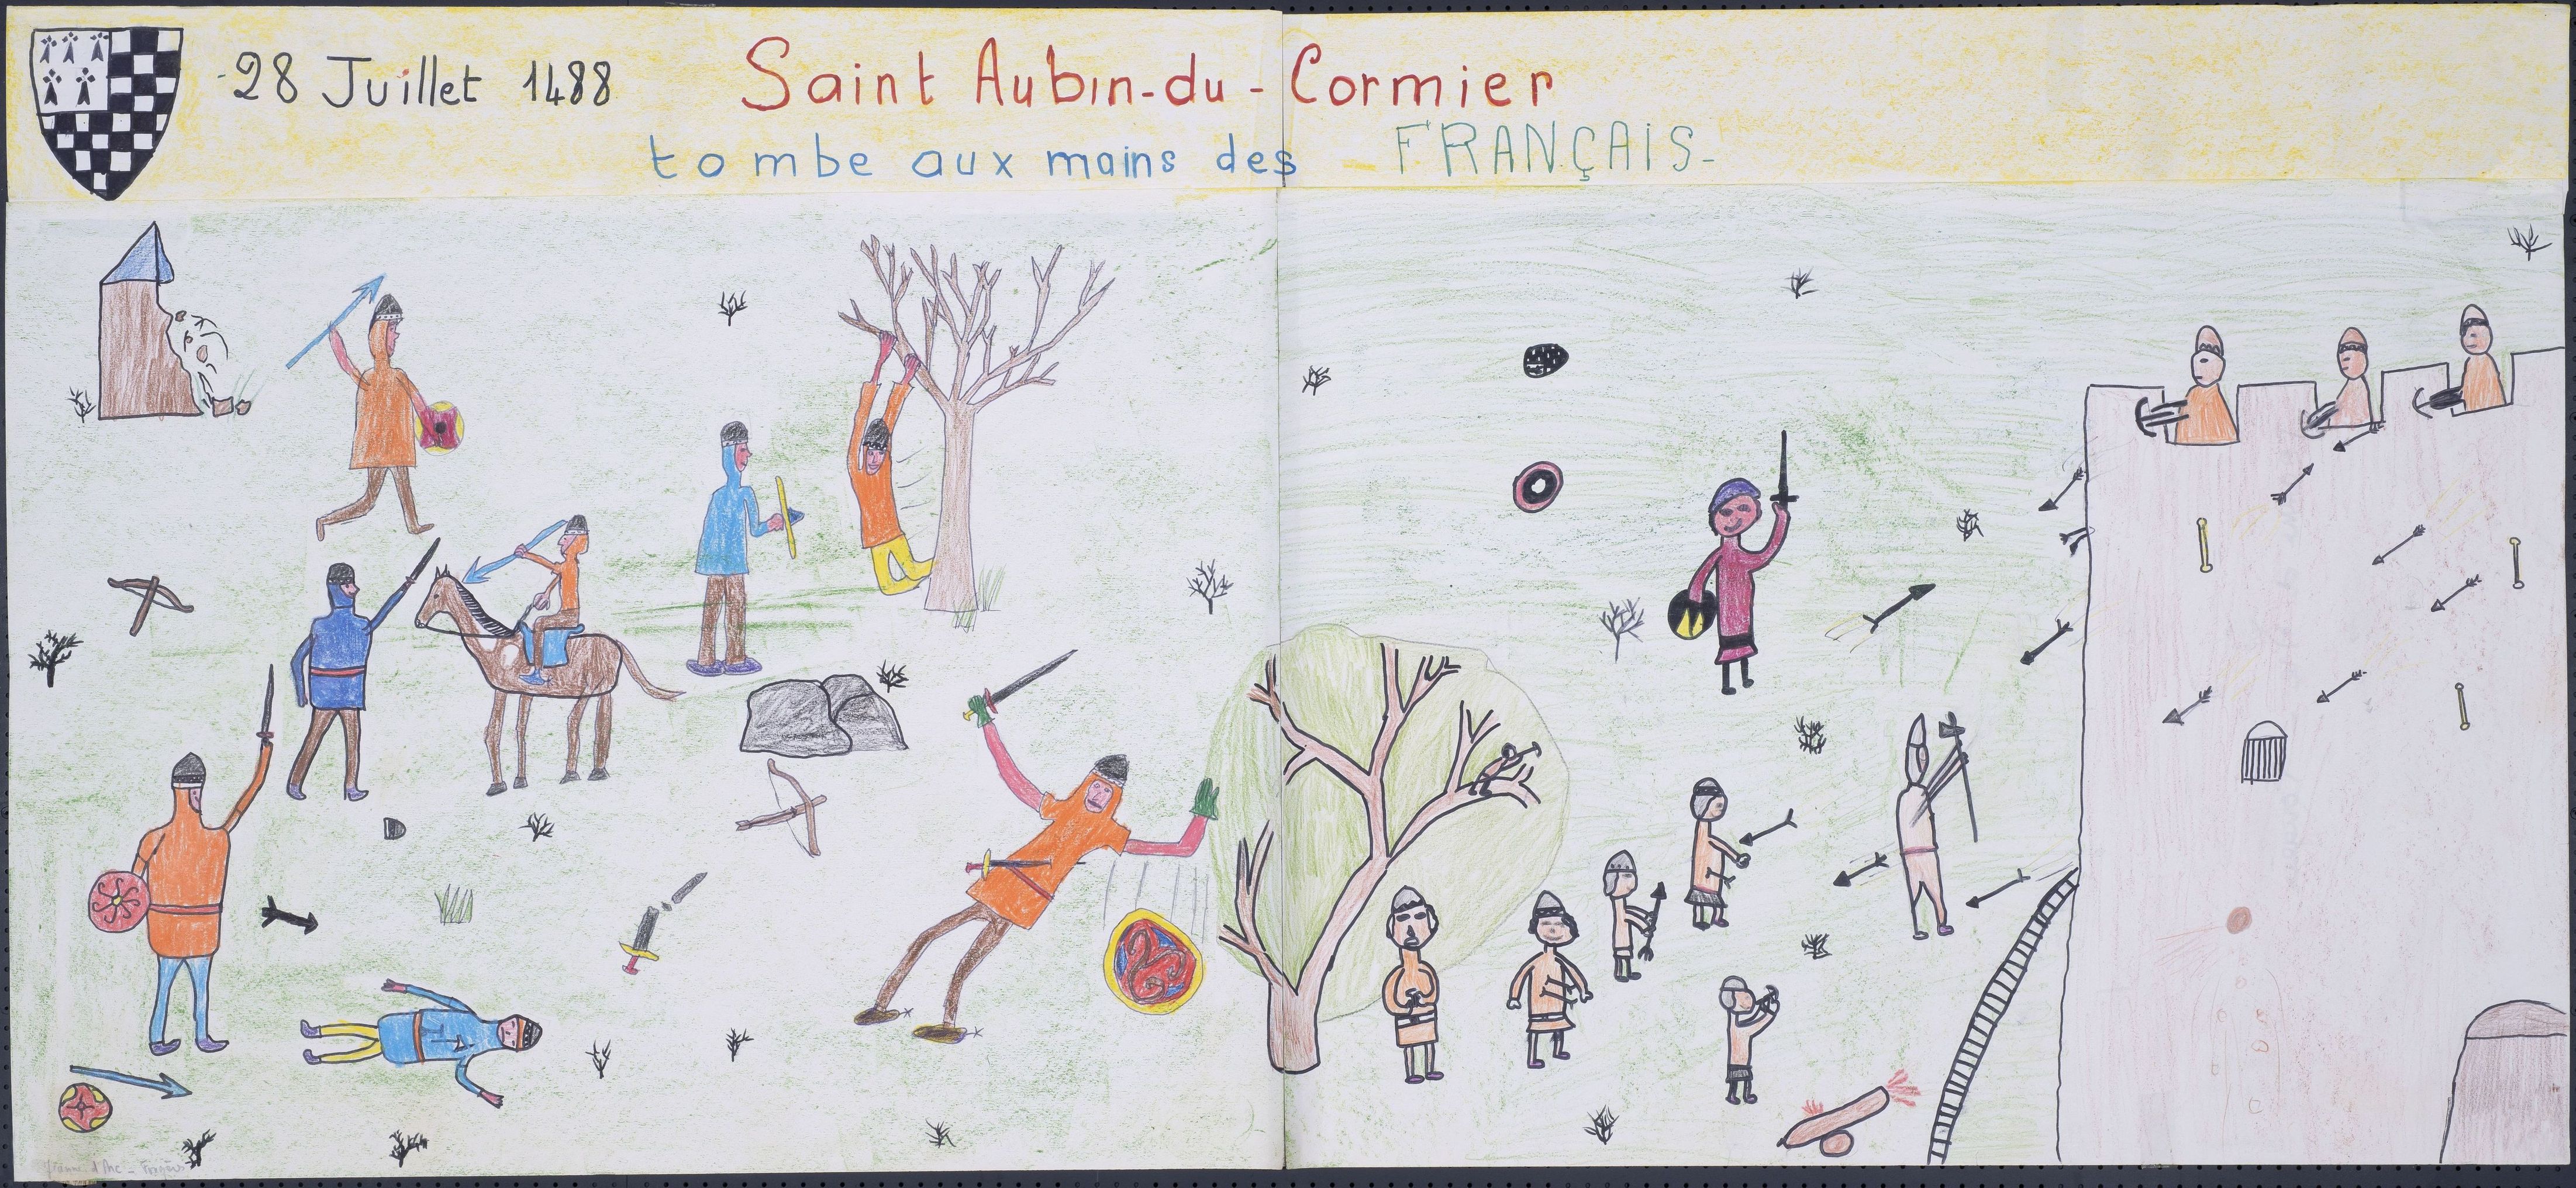 28 Juillet 1488 Saint Aubin-du-Cormier
tombe aux mains des FRANÇAIS